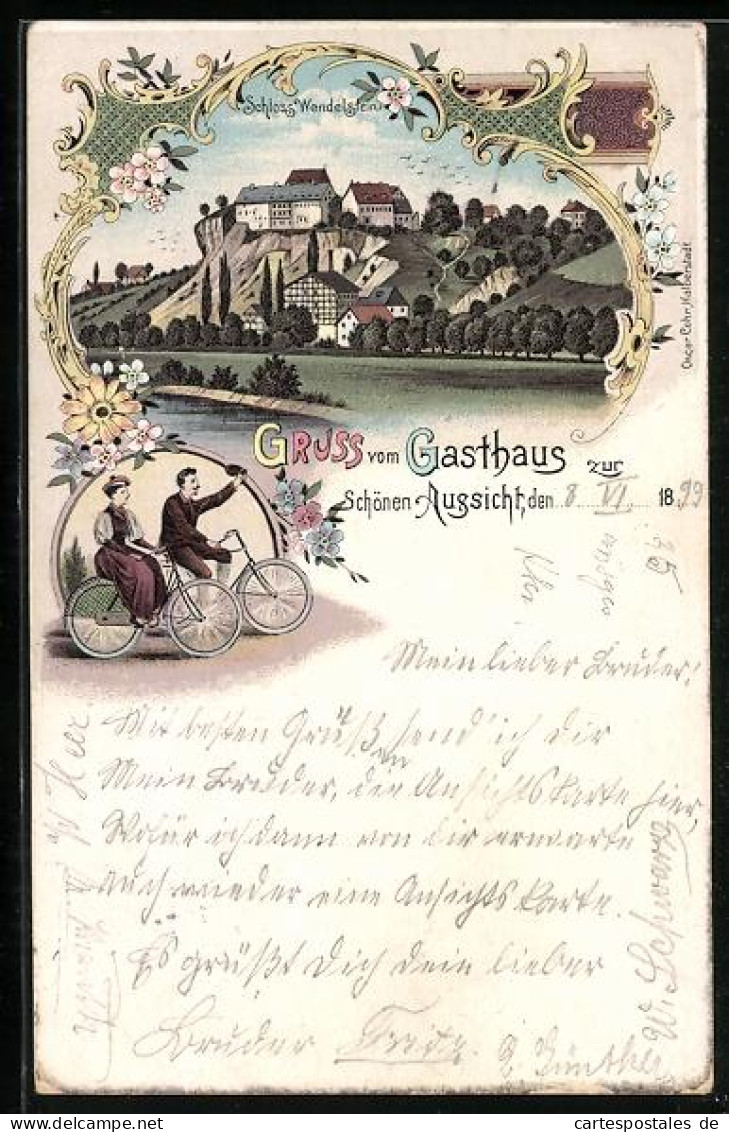 Schloss Wendelstein
Oscar Rohr, Halberstadt
Gruss vom Gasthaus zur
Schönen Aussicht, den 8 VI. 1899
35
Mein lieber Bruder!
Mit besten Grüßen send' ich dir
Mein Bruder, die Ansichtskarte hier,
Wofür ich dann von dir erwarte
auch wieder eine Ansichtskarte.
Es grüßt Dich dein lieber
Bruder Fritz.
W. Schwarz
Günther
cartespostales.de